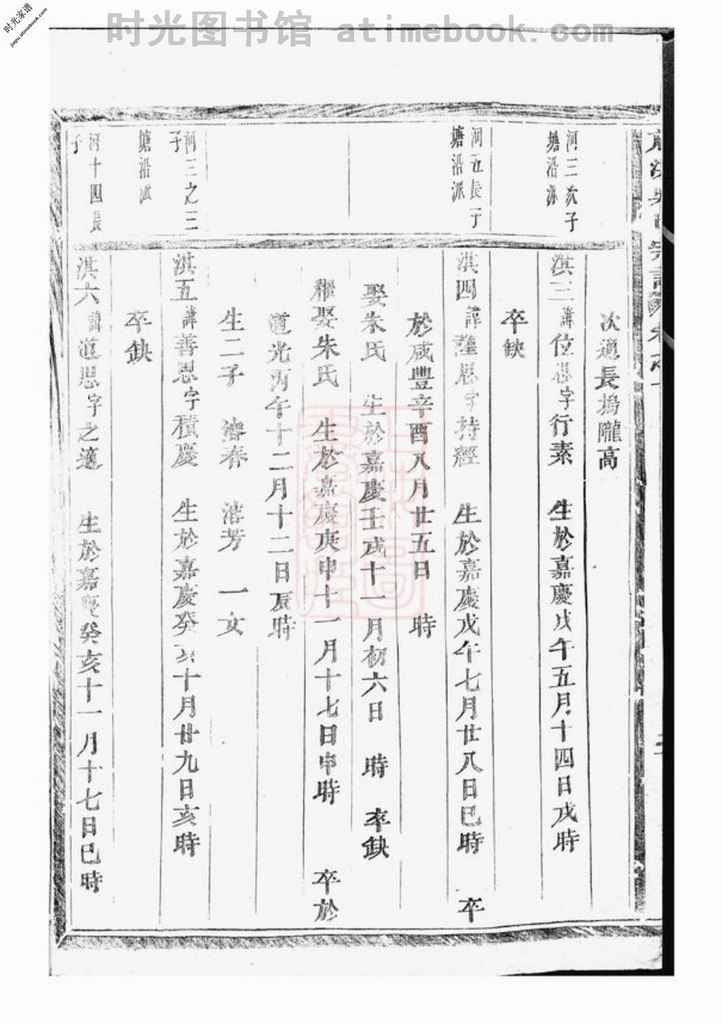 时光图书馆 atimebook.com
时光家谱
次適長塢隴高
河三次子
塘沿派
淇三諱位思字行素 生於嘉慶戊午五月十四日戌時
卒缺
河五長子
塘沿派
淇四諱 思字持經 生於嘉慶戊午七月廿八日巳時 卒
於咸豐辛酉八月廿五日 時
娶朱氏 生於嘉慶壬戌十一月初六日 時 卒缺
繼娶朱氏 生於嘉慶庚申十一月十七日申時 卒於
道光丙午十二月十二日辰時
生二子 濬春 濬芳 一女
河三之三
子
淇五諱善思字積慶 生於嘉慶癸亥十月廿九日亥時
塘沿派
卒缺
河十四長
子
淇六諱道思字之適 生於嘉慶癸亥十一月十七日巳時